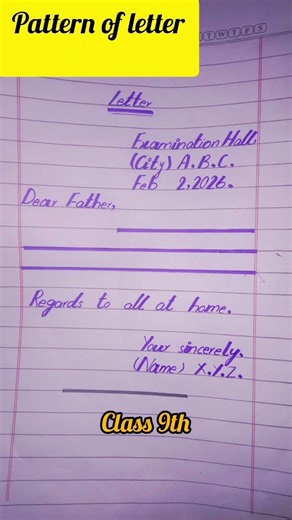 Pattern of letter
Letter
Examination Hall,
(City) A.B.C.
Feb 2,2026.
Dear Father,
Regards to all at home.
Your sincerely.
(Name) X.Y.Z.
Class 9th